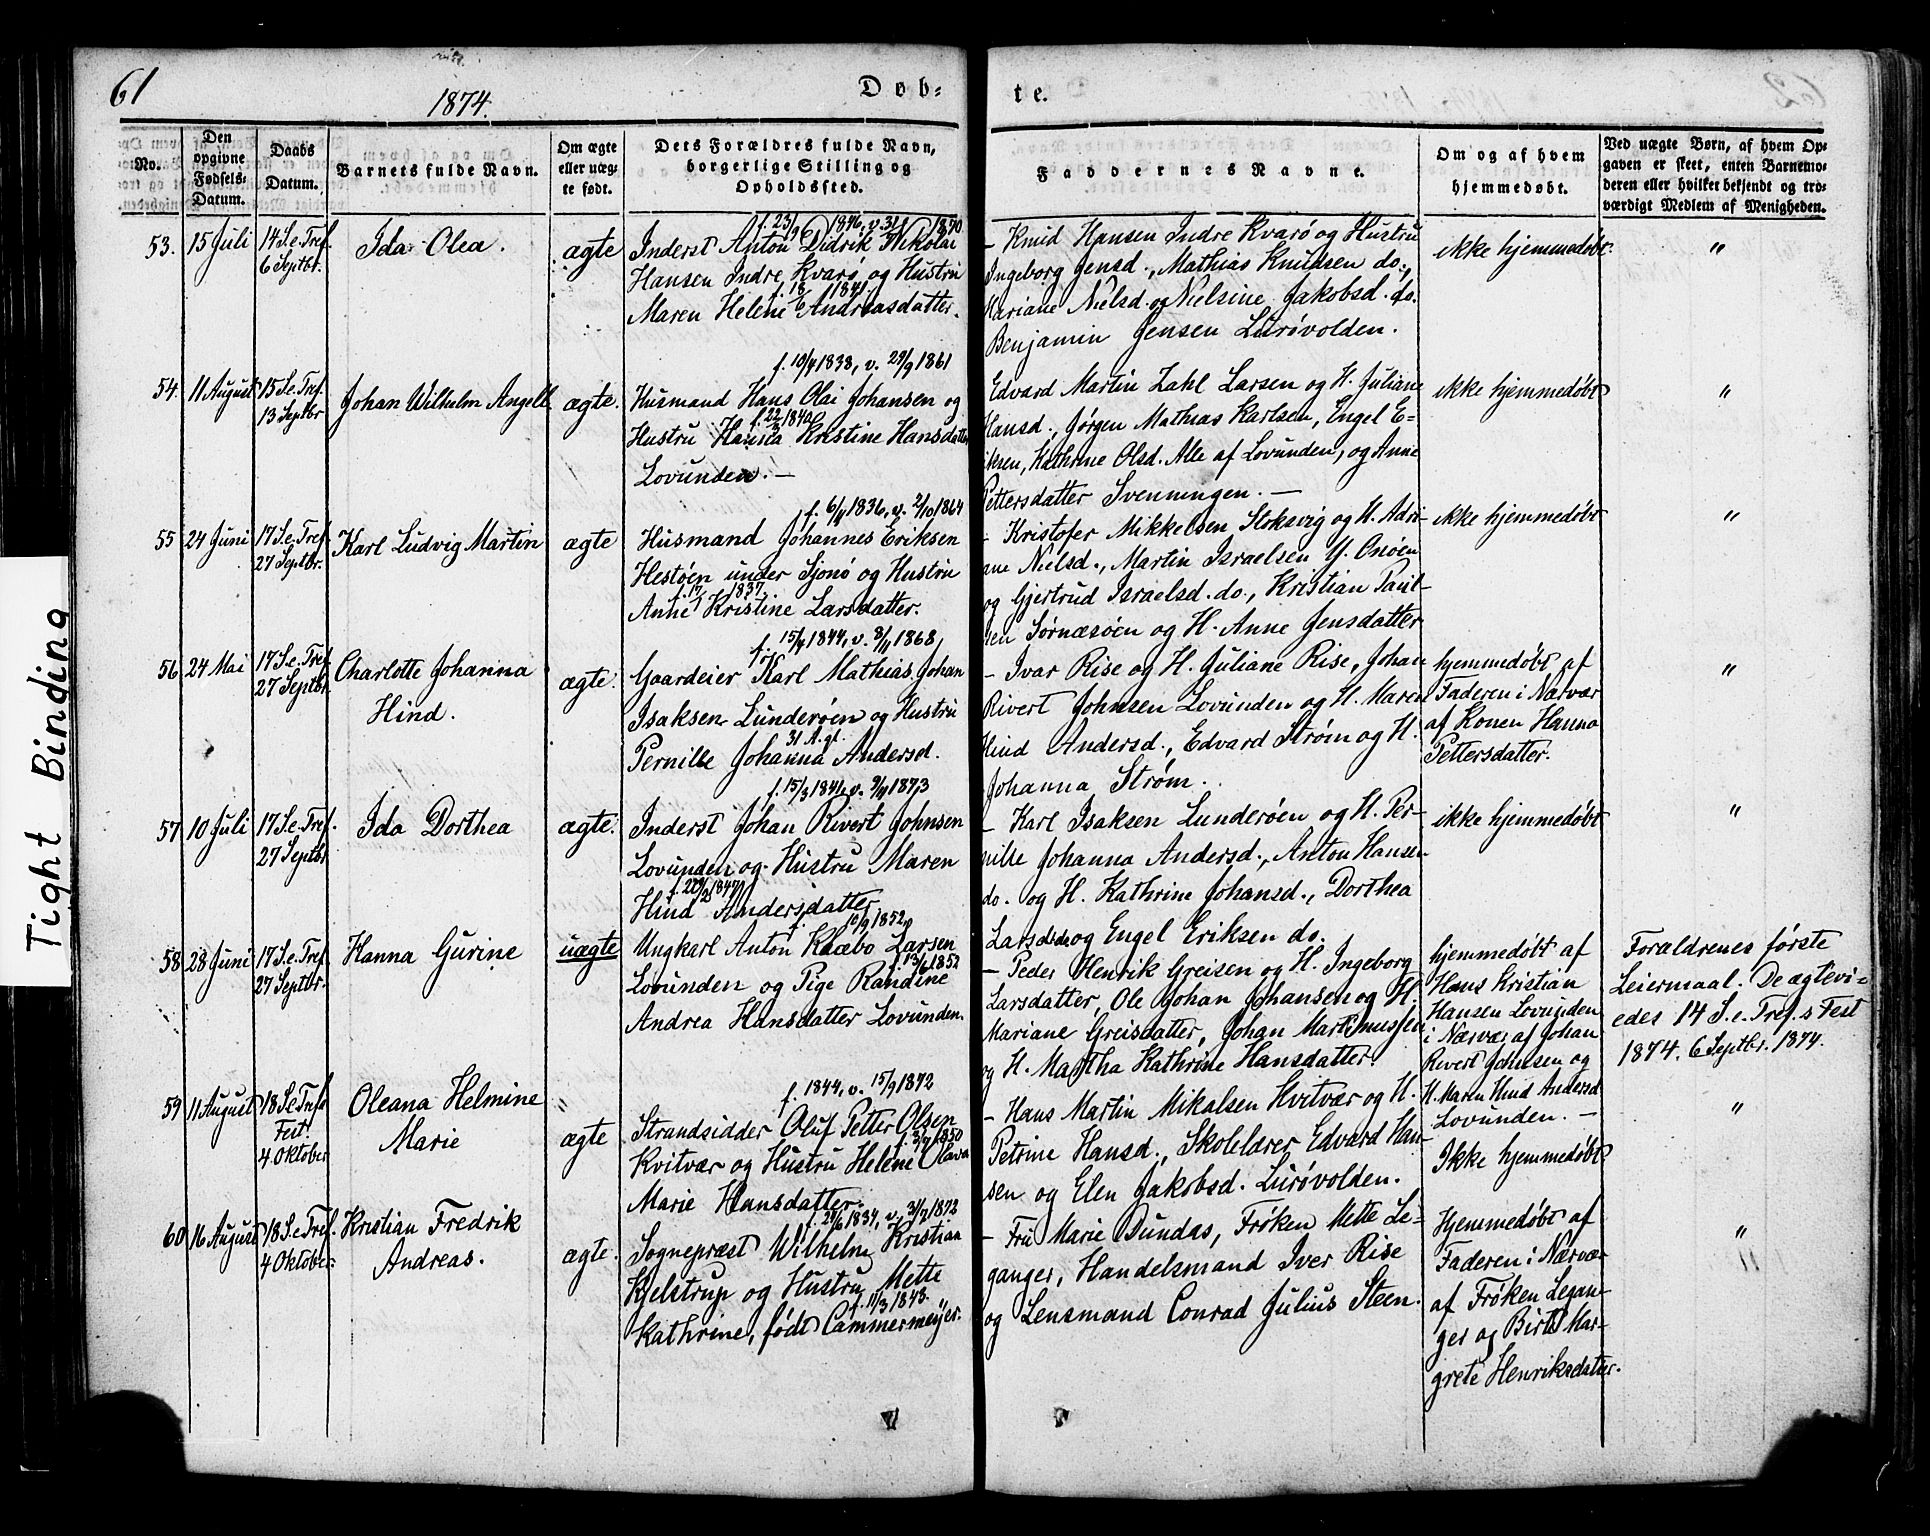 61
1874.
Døb-
te.
No.
Den
opgivne
Fødsels-
Datum.
Daabs
Datum.
Barnets fulde Navn.
Om ægte
eller uæg-
te født.
Dets Forældres fulde Navn,
borgerlige Stilling og
Opholdssted.
Faddernes Navne.
Om og af hvem
hjemmedøbt.
Ved uægte Børn, af hvem Op-
gaven er skeet, enten Barnemo-
deren eller hvilket bekjendt og tro-
værdigt Medlem af Menigheden.
53.
15 Juli
14 S. e. Tref.
6 Septbr.
Ida Olea.
ægte
Inderst Anton Didrik Nikolai
Hansen Indre Kvarø og Hustru
Maren Helene Andreasdatter.
- Knud Hansen Indre Kvarø og Hustru
Ingeborg Jensd., Mathias Knudsen do.,
Mariane Nielsd. og Nielsine Jakobsd. do.
Benjamin Jensen Lurøvolden.
ikke hjemmedøbt.
"
54.
11 August
15 S. e. Tref.
13 Septbr
Johan Wilhelm Angell
ægte.
f. 10/4 1838, v. 29/9 1861
Husmand Hans Olai Johansen og
f. 22/3 1840
Hustru Hanna Kristine Hansdatter
Lovunden. —
Edvard Martin Zahl Larsen og H. Juliane
Hansd., Jørgen Mathias Karlsen, Engel E-
riksen, Kathrine Olsd. Alle af Lovunden, og Anne
Pettersdatter Svenningen. —
ikke hjemmedøbt
"
55
24 Juni
17 S. e. Tref.
27 Septbr.
Karl Ludvig Martin
ægte
Husmand Johannes Eriksen
Hestøen under Sjonø og Hustru
Anne Kristine Larsdatter.
- Kristofer Mikkelsen Stoksvig og H. Adri-
ane Nielsd., Martin Israelsen Y. Onøen
og Gjertrud Israelsd. do., Kristian Paul-
sen Sørnæsøen og H. Anne Jensdatter
ikke hjemmedøbt
"
56
24 Mai
17 S. e. Tref.
27 Septbr.
Charlotte Johanna
Hind.
ægte.
Gaardeier Karl Mathias Johan
Isaksen Lunderøen og Hustru
31 A. gl.
Pernille Johanna Andersd.
- Ivar Rise og H. Juliane Rise, Johan
Rivert Johnsen Lovunden og H. Maren
Hind Andersd., Edvard Strøm og H.
Johanna Strøm.
hjemmedøbt af
Faderen i Nærvær
af Konen Hanna
Pettersdatter.
"
57
10 Juli
17 S. e. Tref.
27 Septbr
Ida Dorthea
ægte.
Inderst Johan Rivert Johnsen
Lovunden og Hustru Maren
Hind Andersdatter
- Karl Isaksen Lunderøen og H. Per-
nille Johanna Andersd., Anton Hansen
do. og H. Kathrine Johansd., Dorthea
Larsd. do og Engel Eriksen do.
ikke hjemmedøbt
"
58
28 Juni
17 S. e. Tref.
27 Septbr.
Hanna Gurine
uægte
Ungkarl Anton Klæbo Larsen
Lovunden og Pige Randine
Andrea Hansdatter Lovunden.
- Peder Henrik Greisen og H. Ingeborg
Larsdatter, Ole Johan Johansen og H.
Mariane Greisdatter, Johan Martinussen
og H. Martha Kathrine Hansdatter.
hjemmedøbt af
Hans Kristian
Hansen Lovunden
i Nærvær af Johan
Rivert Johnsen og
H. Maren Hind Andersd
Lovunden. —
Forældrenes første
Leiermaal. De ægtevi-
edes 14 S. e. Tref.s Fest
1874. 6 Septbr. 1874.
59
11 August
18 S. e. Tref.s
Fest.
4. Oktober
Oleana Helmine
Marie
ægte
f. 1844, v. 15/9 1872
Strandsidder Oluf Petter Olsen
Kvitvær og Hustru Helene Olava
Marie Hansdatter.
- Hans Martin Mikalsen Kvitvær og H.
Petrine Hansd., Skolelærer Edvard Han-
sen og Elen Jakobsd. Lurøvolden.
Ikke hjemmedøbt
"
60
16 August
18 S. e. Tref.
4 Oktober.
Kristian Fredrik
Andreas.
ægte.
Sognepræst Wilhelm Kristian
Kjelstrup og Hustru Mette
f. 11/3 1848.
Kathrine, født Cammermeijer.
- Fru Marie Dundas, Frøken Mette Le-
ganger, Handelsmand Iver Rise
og Lensmand Conrad Julius Steen.
Hjemmedøbt af
Faderen i Nærvær
af Frøken Legan-
ger og Birte Mar-
grete Henriksdatter.
"
Tight Binding